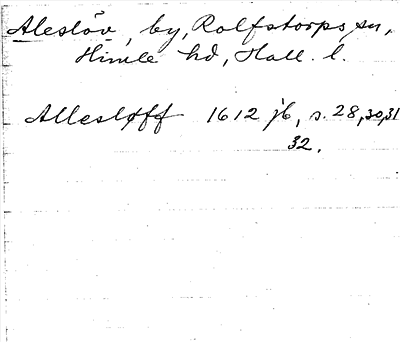 Aleslöv, by, Rolfstorps sn,
Himle hd, Hall. l.
Allesløff 1612 jb, s. 28, 30, 31
32.